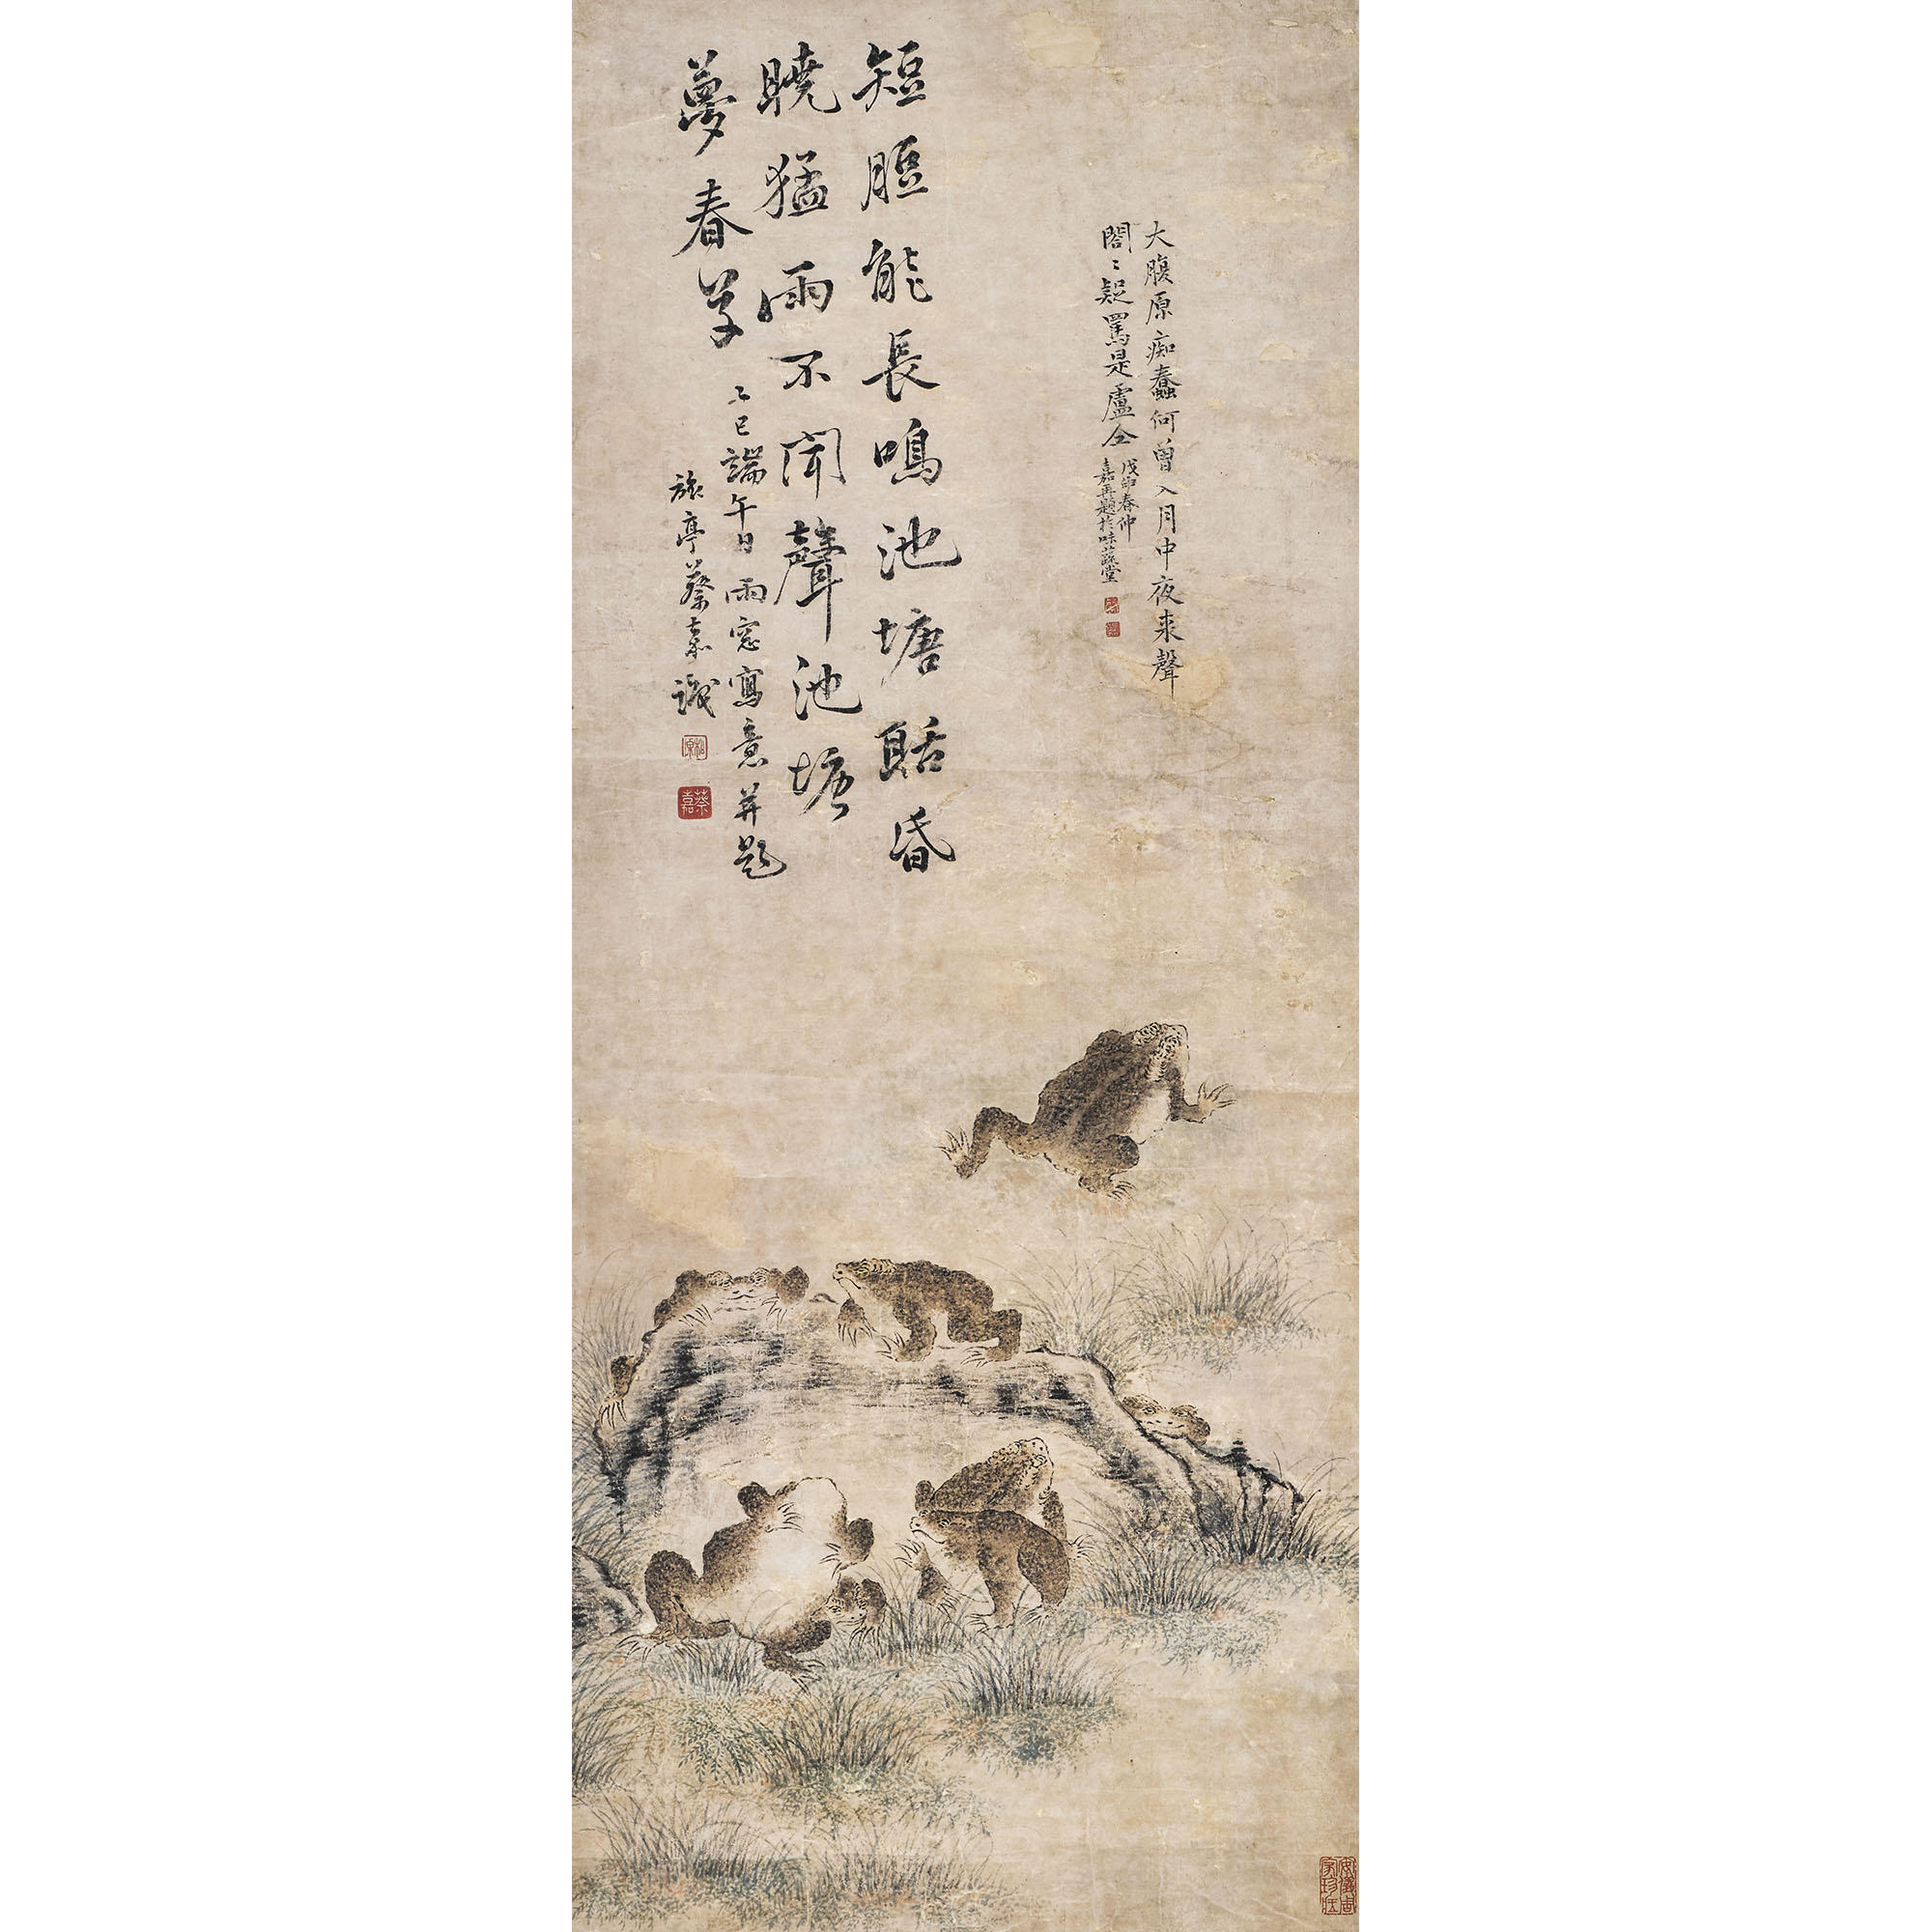 大腹原痴蠢何曾入月中夜來聲
閤〻疑罵是盧仝
戊申春仲
嘉再題於味蔬堂
短脰能長鳴池塘聒昏
曉猛雨不聞聲池塘
夢春草
乙巳端午日雨窓寫意并題
旅亭蔡嘉識
松原
蔡嘉
安儀周
家珍藏